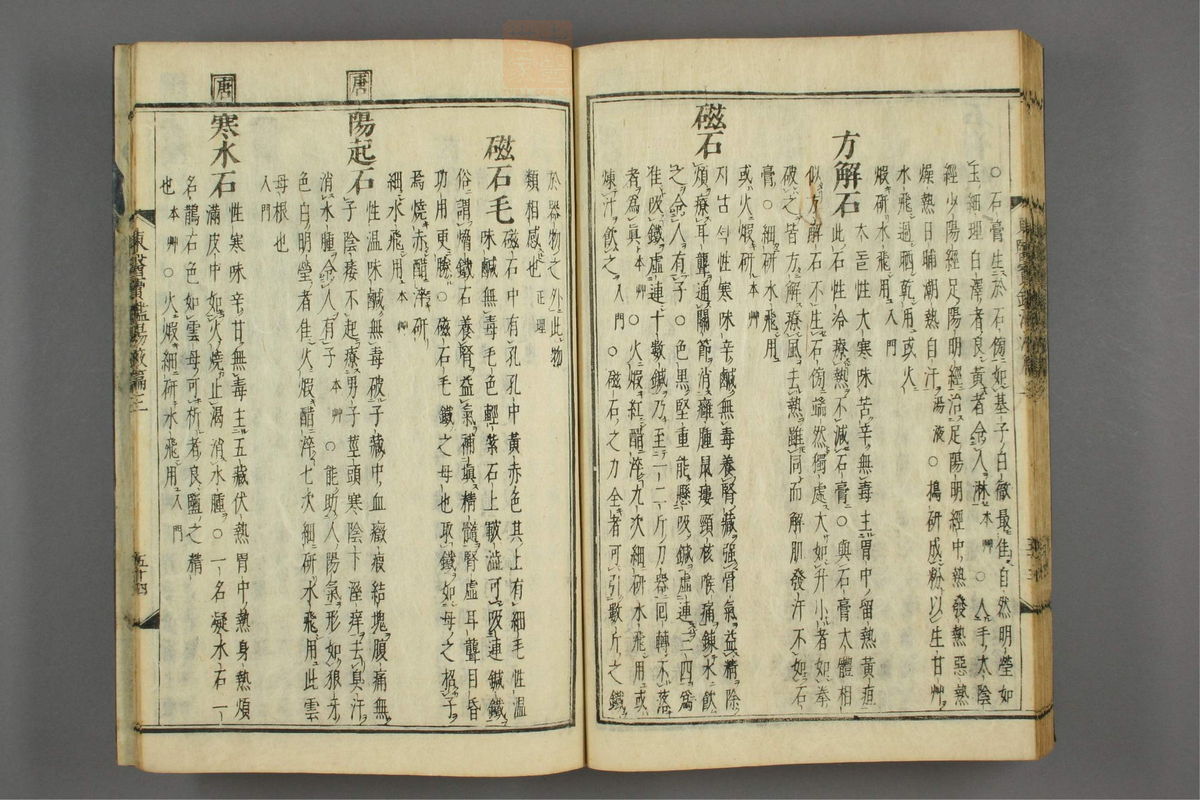 ○石膏生於石傍如棊子白徹最佳自然明瑩如
玉細理白澤者良黃者令人淋本艸○入手太陰
經少陽經足陽明經治足陽明經中熱發熱惡熱
燥熱日晡潮熱自汗湯液○搗研成粉以生甘艸
水飛過晒乾用或火
煅研水飛用入門
方解石 此石性大寒味苦辛無毒主胃中留熱黃疸
此石性冷療熱不減石膏○與石膏大體相
似方解石不生石傍端然獨處大如升小者如拳
破之皆方解療風去熱雖同而解肌發汗不如石
膏○細研水飛用
或火煅研本艸
磁石 지남석性寒味辛鹹無毒養腎藏强骨氣益精除
煩療耳聾通關節消癰腫鼠瘻頸核喉痛鍊水飮
之令人有子○色黑堅重能懸吸鍼虛連三四爲
佳吸鐵虛連十數鍼乃至一二斤刀器回轉不落
者爲眞本艸○火煅紅醋淬九次細研水飛用或
煉汁飮之入門○磁石之力全者可引數斤之鐵
於器物之外此物
類相感也正理
磁石毛 味鹹無毒毛色輕紫石上皸澁可吸連鍼鐵
磁石中有孔孔中黃赤色其上有細毛性溫
俗謂熁鐵石養腎益氣補塡精髓腎虛耳聾目昏
功用更勝○磁石毛鐵之母也取鐵如母之招子
焉燒赤醋淬硏
細水飛用本艸
唐 陽起石 性溫味鹹無毒破子藏中血癥瘕結塊腹痛無
子陰痿不起療男子莖頭寒陰下濕痒去臭汗
消水腫令人有子本艸○能助人陽氣形如狼牙
色白明瑩者佳火煅醋淬七次細研水飛用此雲
母根也
入門
唐 寒水石 性寒味辛甘無毒主五藏伏熱胃中熱身熱煩
滿皮中如火燒止渴消水腫○一名凝水石一
名鵲石色如雲母可析者良鹽之精
也本艸○火煅細研水飛用入門
東醫寶鑑湯液篇三
五十四